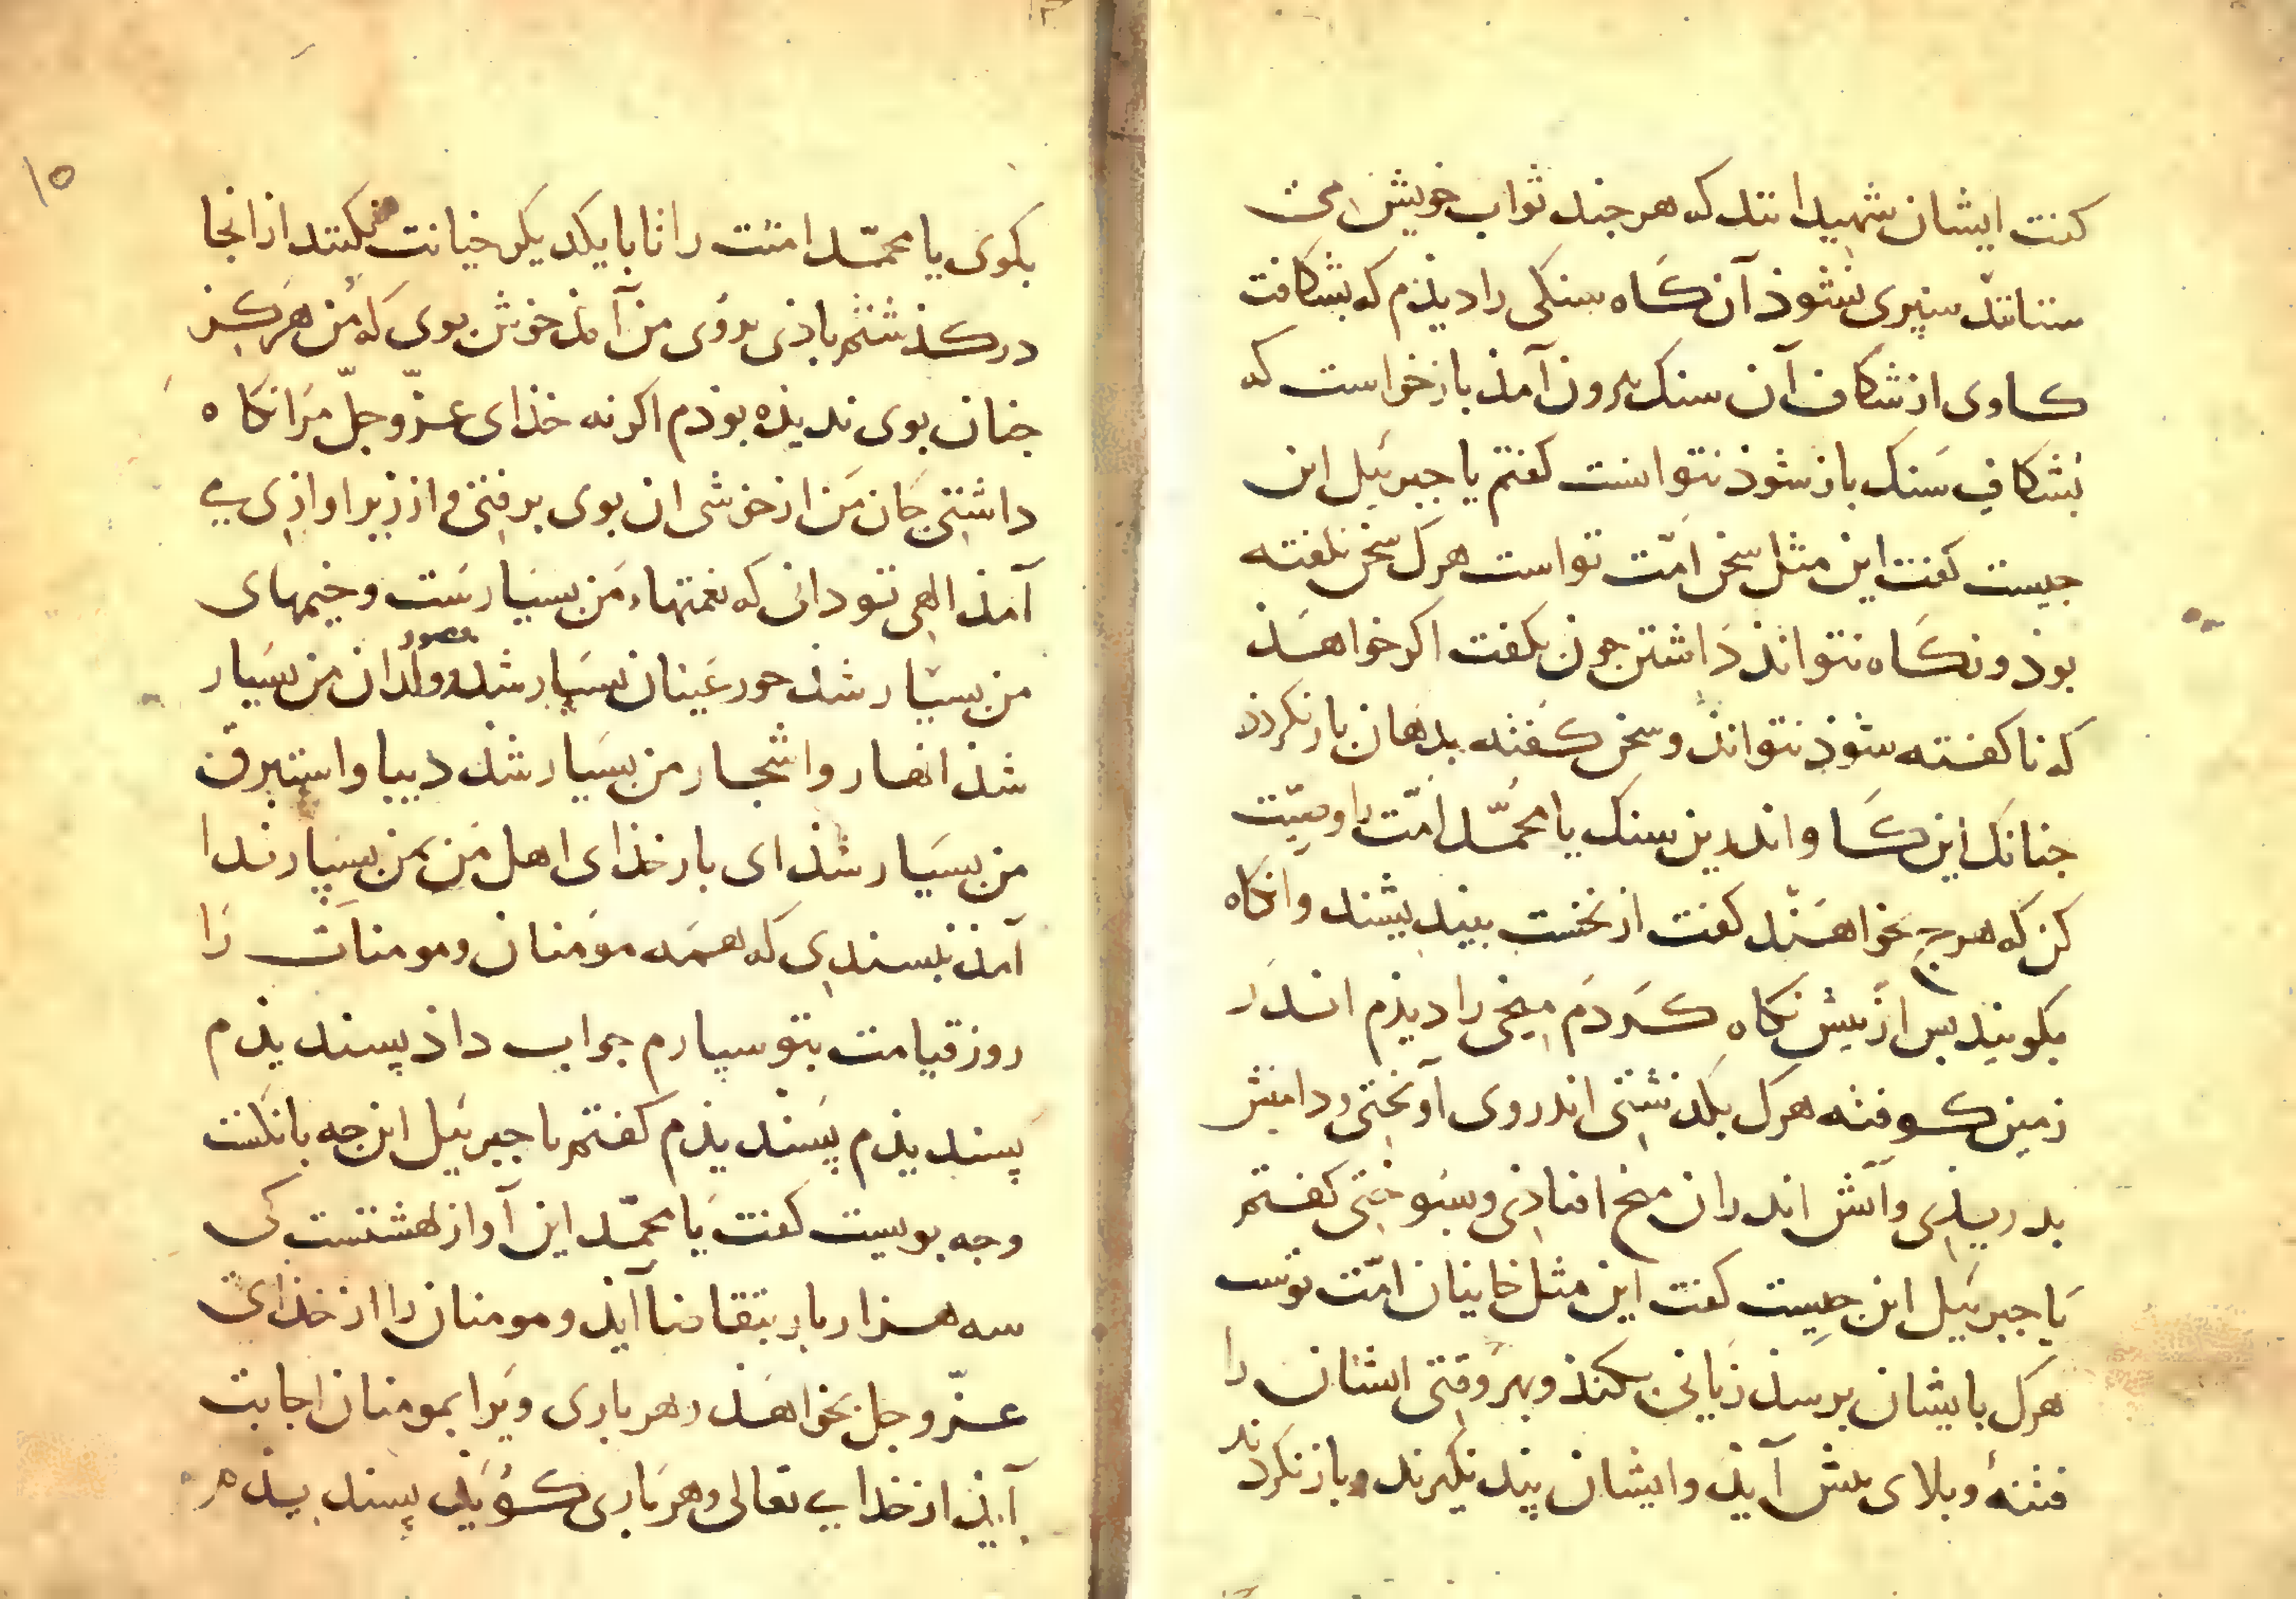 کفت ایشان شهیدانند که هر جند ثواب خویش می
ستانند سپری نشوذ آن کاه سنکی را دیذم که بشکافت
کاوی از شکاف آن سنک بیرون آمذ باز خواست که
بشکاف سنک باز شوذ نتوانست کفتم یا جبرئیل این
جیست کفت این مثل سخن امّت تو است هرک سخن نکفته
بوذ و نکاه نتواند داشتن جون بکفت اکر خواهذ
که ناکفته شوذ نتواند و سخن کفته بدهان باز نکردد
جنانک این کاو اندرین سنک یا محمّد امّت را وصیّت
کن که هرج بخواهند کفت از نخست بیندیشند وانکاه
بکویند بس از بیش نکاه کردم میخی را دیذم اندر
زمین کوفته هرک بکذشتی اندر وی آویختی و دامنش
بدریذی و آتش اندران میخ افتاذی و بسوختی کفتم
یا جبرئیل این جیست کفت این مثل خاینان امّت توست
هرک بایشان برسذ زیانی بکنذ و بهر وقتی ایشان را
فتنهٔ و بلای بیش آیذ و ایشان پند نکیرند و باز نکردند
۱۵
بکوی یا محمّد امتت را تا با یکدیکر خیانت نکنند از انجا
درکذشتم باذی بروی من آمذ خوش بوی که من هرکز
جنان بوی ندیذه بوذم اکر نه خذای عزّ و جلّ مرا نکاه
داشتی جان من از خوشی ان بوی برفتی و از زیر اوازی بی
آمذ الهی تو دانی که نعمتهاء من بسیارست و خیمهای
من بسیار شذ حور عینان بسیار شد و ولدان من بسیار
شذ انهار و اشجار من بسیار شذ دیبا و استبرق
من بسیار شذ ای بار خذای اهل من بمن بسپار ندا
آمذ بسندی که همه مومنان و مومنات را
روز قیامت بتو سپارم جواب داذ پسندیذم
پسندیذم پسندیذم کفتم یا جبرئیل این جه بانکست
و جه بویست کفت یا محمّد این آواز بهشتست کی
سه هزار بار بتقاضا آیذ و مومنان را از خذای
عزّ و جل بخواهذ هر باری ویرا بمومنان اجابت
آیذ از خدای تعالی و هر باری کویذ پسندیذم